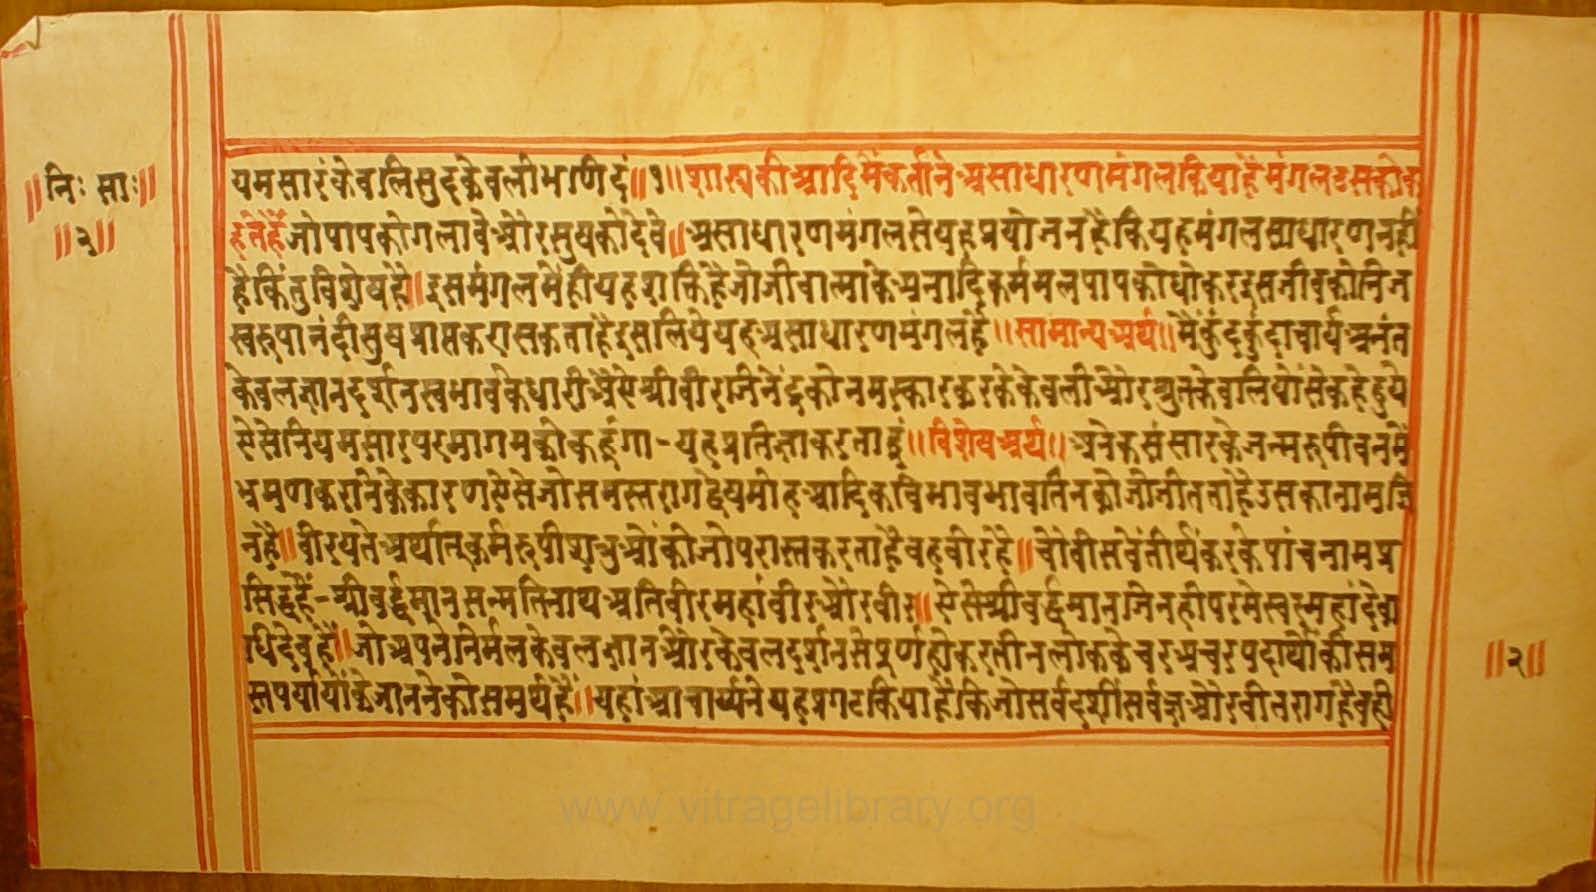 ॥निः साः॥
॥२॥
यमसारं केवलिसुदकेवलीभाणिदं॥१॥शास्त्रकीआदिमेंकर्ताने असाधारणमंगलकियाहैमंगलउसकोक
हतेहैं जोपापकोगलावेऔरसुषकोदेवे॥असाधारणमंगलसेयहप्रयोजनहैकियहमंगलसाधारणनहीं
हैकिंतुविशेषहै॥इसमंगलमेंहीयहशक्तिहैजोजीवात्माकेअनादिकर्ममलपापकोधोकरइसजीवकोनिज
स्वरुपानंदीसुषप्राप्तकरासकताहैइसलियेयहअसाधारणमंगलहै॥सामान्यअर्थ॥मैकुंदकुंदाचार्यअनंत
केवलज्ञानदर्शनस्वभावकेधारीअैसेश्रीवीरजिनेंद्रकोनमस्कारकरकेकेवलीऔरश्रुतकेवलियोंसेकहेहुये
ऐसेनियमसारपरमागमकोकहूंगा-यहप्रतिज्ञाकरताहूं॥विशेषअर्थ॥अनेकसंसारकेजन्मरुपीवनमें
भ्रमणकरानेकेकारणऐसेजोसमस्तरागद्वेषमोहआदिकविभावभावतिनकोजोजीतताहैउसकानामजि
नहै॥वीरयतेअर्थात्कर्मरुपीशत्रुओंकोजोपरास्तकरताहैवहवीरहै॥चोवीसवेंतीर्थंकरकेपांचनामप्र
सिद्धहैं-श्रीवर्द्धमानसन्मतिनाथअतिवीरमहावीरऔरवीर॥ऐसेश्रीवर्द्धमानजिनहीपरमेस्वरमहादेवा
धिदेवहै॥जोअपनेनिर्मलकेवलज्ञानऔरकेवलदर्शनसेपूर्णहोकरतीनलोककेचरअचरपदार्थोकीसम
स्तपर्यायोंकेजाननेकोसमर्थहैं॥यहांआचार्य्यनेयहप्रगटकियाहैकिजोसर्वदर्शीसर्वज्ञऔरवीतरागहैवही
॥२॥
www.vitragelibrary.org